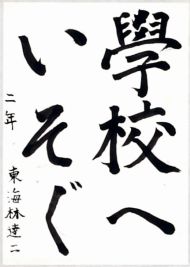 學校へ
いそぐ
二年
東海林達二